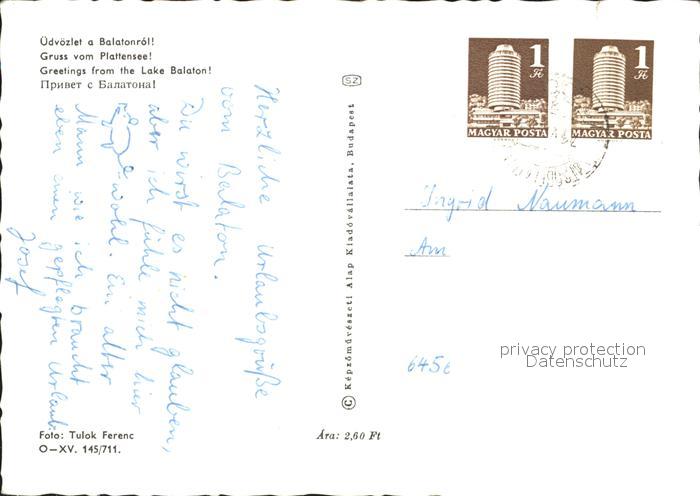 Üdvözlet a Balatonról!
Gruss vom Plattensee!
Greetings from the Lake Balaton!
Привет с Балатона!
Herzliche Urlaubsgrüße
vom Balaton.
Du wirst es nicht glauben,
aber ich fühle mich hier
wohl. Ein alter
Mann wie ich braucht
eben einen gepflegten Urlaub.
Josef
Foto: Tulok Ferenc
O—XV. 145/711.
SZ
© Képzőművészeti Alap Kiadóvállalata, Budapest
Ára: 2,60 Ft
1 Ft
MAGYAR POSTA
1 Ft
MAGYAR POSTA
Ingrid Naumann
Am
645
privacy protection
Datenschutz